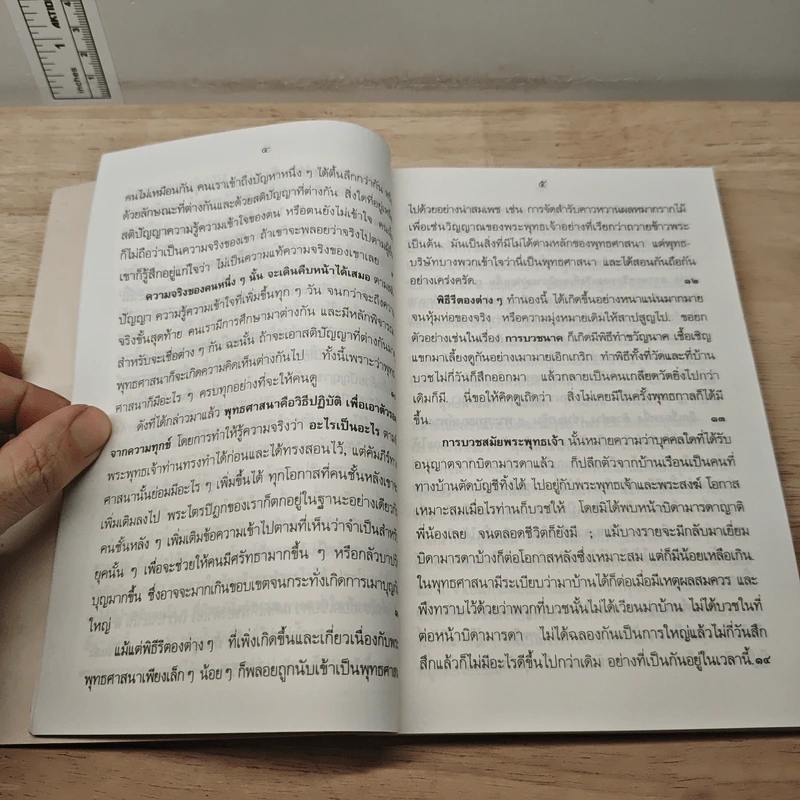 ๔
คนไม่เหมือนกัน คนเราเข้าถึงปัญหาหนึ่ง ๆ ได้ตื้นลึกกว่ากัน
ด้วยลักษณะที่ต่างกันและด้วยสติปัญญาที่ต่างกัน สิ่งใดที่อยู่
สติปัญญาความรู้ความเข้าใจของตน หรือตนยังไม่เข้าใจ คน
ก็ไม่ถือว่าเป็นความจริงของเขา ถ้าเขาจะพลอยว่าจริงไปตามผู้อื่น
เขาก็รู้สึกอยู่แก่ใจว่า ไม่เป็นความแท้ความจริงของเขาเลย
ความจริงของคนหนึ่ง ๆ นั้น จะเดินคืบหน้าได้เสมอ ตาม
ปัญญา ความรู้ความเข้าใจที่เพิ่มขึ้นทุก ๆ วัน จนกว่าจะถึงความ
จริงขั้นสุดท้าย คนเรามีการศึกษามาต่างกัน และมีหลักพิจารณา
สำหรับจะเชื่อต่าง ๆ กัน ฉะนั้น ถ้าจะเอาสติปัญญาที่ต่างกันมา
พุทธศาสนาก็จะเกิดความคิดเห็นต่างกันไป ทั้งนี้เพราะว่าพุทธ
ศาสนาก็มีอะไร ๆ ครบทุกอย่างที่จะให้คนดู
ดังที่ได้กล่าวมาแล้ว พุทธศาสนาคือวิธีปฏิบัติ เพื่อเอาตัวรอด
จากความทุกข์ โดยการทำให้รู้ความจริงว่า อะไรเป็นอะไร ตาม
พระพุทธเจ้าท่านทรงทำได้ก่อนและได้ทรงสอนไว้, แต่คัมภีร์ทาง
ศาสนานั้นย่อมมีอะไร ๆ เพิ่มขึ้นได้ ทุกโอกาสที่คนชั้นหลังเขาจะ
เพิ่มเติมลงไป พระไตรปิฎกของเราก็ตกอยู่ในฐานะอย่างเดียวกัน
คนชั้นหลัง ๆ เพิ่มเติมข้อความเข้าไปตามที่เห็นว่าจำเป็นสำหรับ
ยุคนั้น ๆ เพื่อจะช่วยให้คนมีศรัทธามากขึ้น ๆ หรือกลัวบาปรัก
บุญมากขึ้น ซึ่งอาจจะมากเกินขอบเขตจนกระทั่งเกิดการเมาบุญกัน
ใหญ่
แม้แต่พิธีรีตองต่าง ๆ ที่เพิ่งเกิดขึ้นและเกี่ยวเนื่องกับพระ
พุทธศาสนาเพียงเล็ก ๆ น้อย ๆ ก็พลอยถูกนับเข้าเป็นพุทธศาสนา
๕
ไปด้วยอย่างน่าสมเพช เช่น การจัดสำรับคาวหวานผลหมากรากไม้
เพื่อเซ่นวิญญาณของพระพุทธเจ้าอย่างที่เรียกว่าถวายข้าวพระ
เป็นต้น. มันเป็นสิ่งที่มีไม่ได้ตามหลักของพุทธศาสนา แต่พุทธ-
บริษัทบางพวกเข้าใจว่านี่เป็นพุทธศาสนา และได้สอนกันถือกัน
อย่างเคร่งครัด. ๑๒
พิธีรีตองต่าง ๆ ทำนองนี้ ได้เกิดขึ้นอย่างหนาแน่นมากมาย
จนหุ้มห่อของจริง หรือความมุ่งหมายเดิมให้สาปสูญไป. ขอยก
ตัวอย่างเช่นในเรื่อง การบวชนาค ก็เกิดมีพิธีทำขวัญนาค เชื้อเชิญ
แขกมาเลี้ยงดูกันอย่างเมามายเอิกเกริก ทำพิธีทั้งที่วัดและที่บ้าน
บวชไม่กี่วันก็สึกออกมา แล้วกลายเป็นคนเกลียดวัดยิ่งไปกว่า
เดิมก็มี. นี่ขอให้คิดดูเถิดว่า สิ่งไม่เคยมีในครั้งพุทธกาลก็ได้มี
ขึ้น. ๑๓
การบวชสมัยพระพุทธเจ้า นั้นหมายความว่าบุคคลใดที่ได้รับ
อนุญาตจากบิดามารดาแล้ว ก็ปลีกตัวจากบ้านเรือนเป็นคนที่
ทางบ้านตัดบัญชีทิ้งได้ ไปอยู่กับพระพุทธเจ้าและพระสงฆ์ โอกาส
เหมาะสมเมื่อไรท่านก็บวชให้ โดยมิได้พบหน้าบิดามารดาญาติ
พี่น้องเลย จนตลอดชีวิตก็ยังมี ; แม้บางรายจะมีกลับมาเยี่ยม
บิดามารดาบ้างก็ต่อโอกาสหลังซึ่งเหมาะสม แต่ก็มีน้อยเหลือเกิน.
ในพุทธศาสนามีระเบียบว่ามาบ้านได้ก็ต่อเมื่อมีเหตุผลสมควร และ
พึงทราบไว้ด้วยว่าพวกที่บวชนั้นไม่ได้เวียนมาบ้าน ไม่ได้บวชในที่
ต่อหน้าบิดามารดา ไม่ได้ฉลองกันเป็นการใหญ่แล้วไม่กี่วันสึก
สึกแล้วก็ไม่มีอะไรดีขึ้นไปกว่าเดิม อย่างที่เป็นกันอยู่ในเวลานี้.๑๔